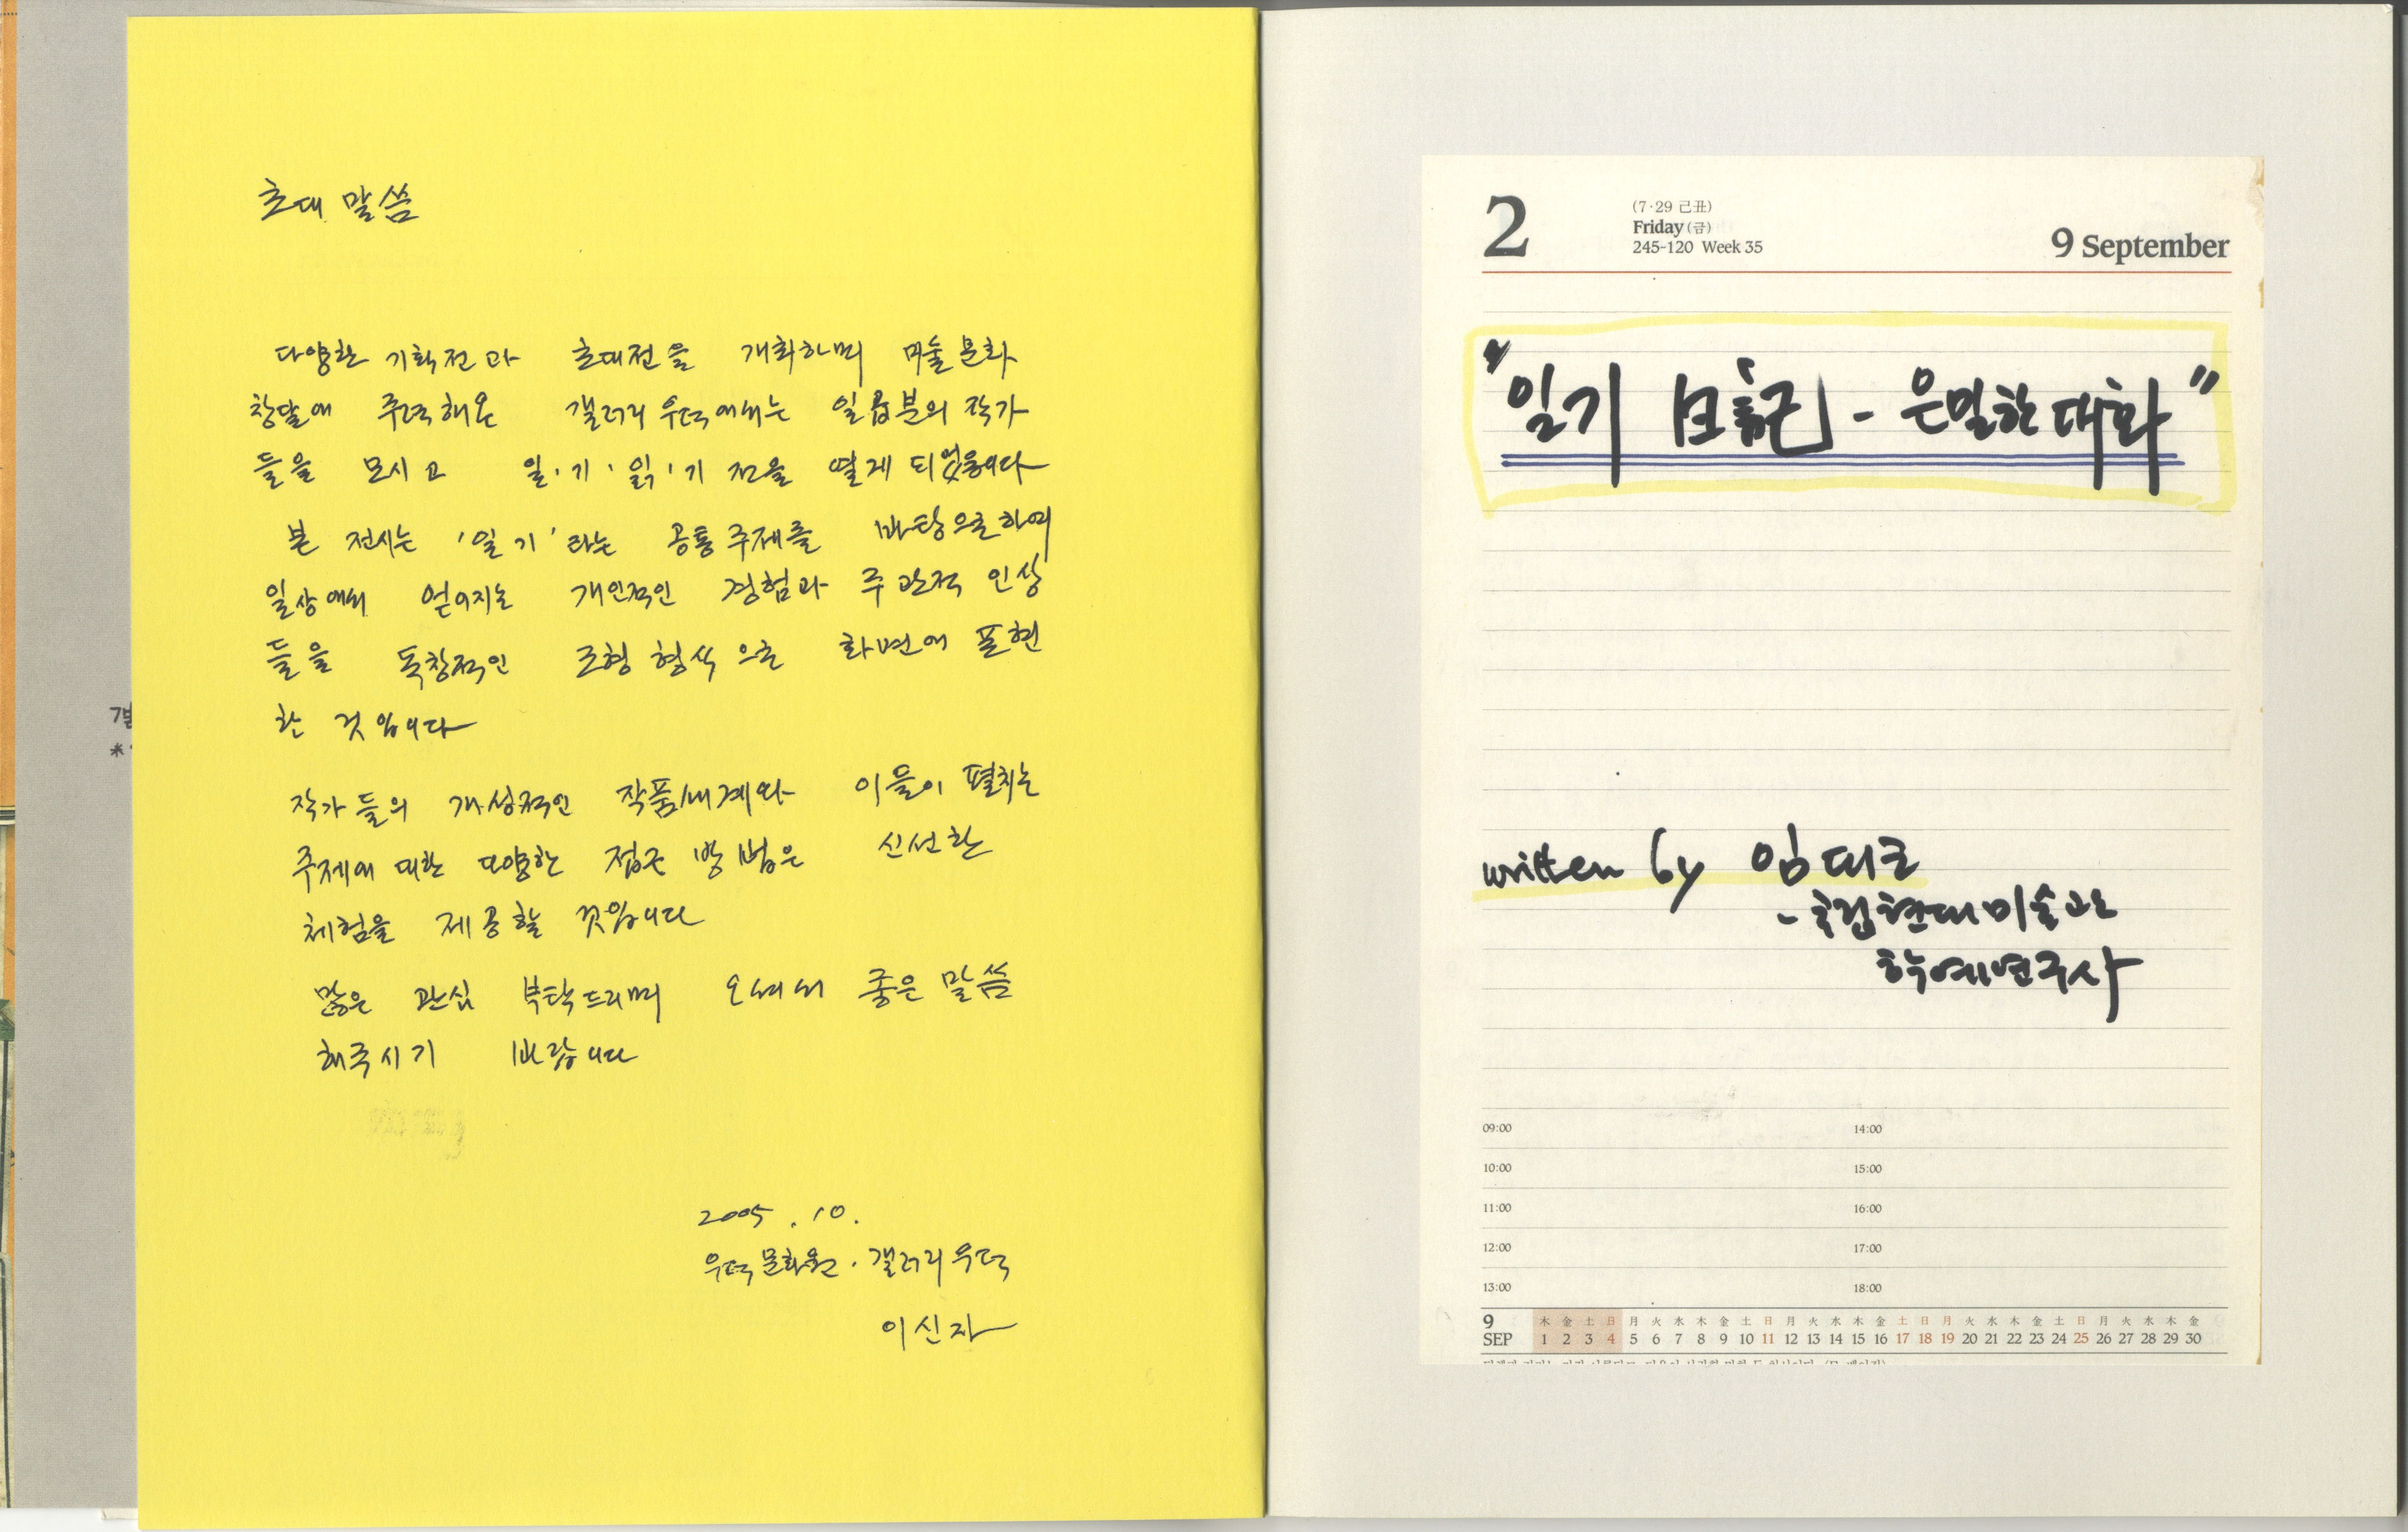 초대 말씀
다양한 기획전과 초대전을 개최하며 미술문화
창달에 주력해온 갤러리 우덕에서는 일곱분의 작가
들을 모시고 일·기·읽·기 전을 열게 되었습니다
본 전시는 '일기'라는 공통주제를 바탕으로하여
일상에서 얻어지는 개인적인 경험과 주관적 인상
들을 독창적인 조형 형식으로 화면에 표현
한 것입니다
작가들의 개성적인 작품세계와 이들이 펼치는
주제에 대한 다양한 접근 방법은 신선한
체험을 제공할 것입니다
많은 관심 부탁드리며 오셔서 좋은 말씀
해주시기 바랍니다
2005. 10.
우덕문화원·갤러리우덕
이신자
2
(7·29 己丑)
Friday (금)
245-120 Week 35
9 September
"일기 日記 - 은밀한 대화"
written by 임대근
- 국립현대미술관
학예연구사
09:00 14:00
10:00 15:00
11:00 16:00
12:00 17:00
13:00 18:00
9 木 金 土 日 月 火 水 木 金 土 日 月 火 水 木 金 土 日 月 火 水 木 金 土 日 月 火 水 木 金
SEP 1 2 3 4 5 6 7 8 9 10 11 12 13 14 15 16 17 18 19 20 21 22 23 24 25 26 27 28 29 30